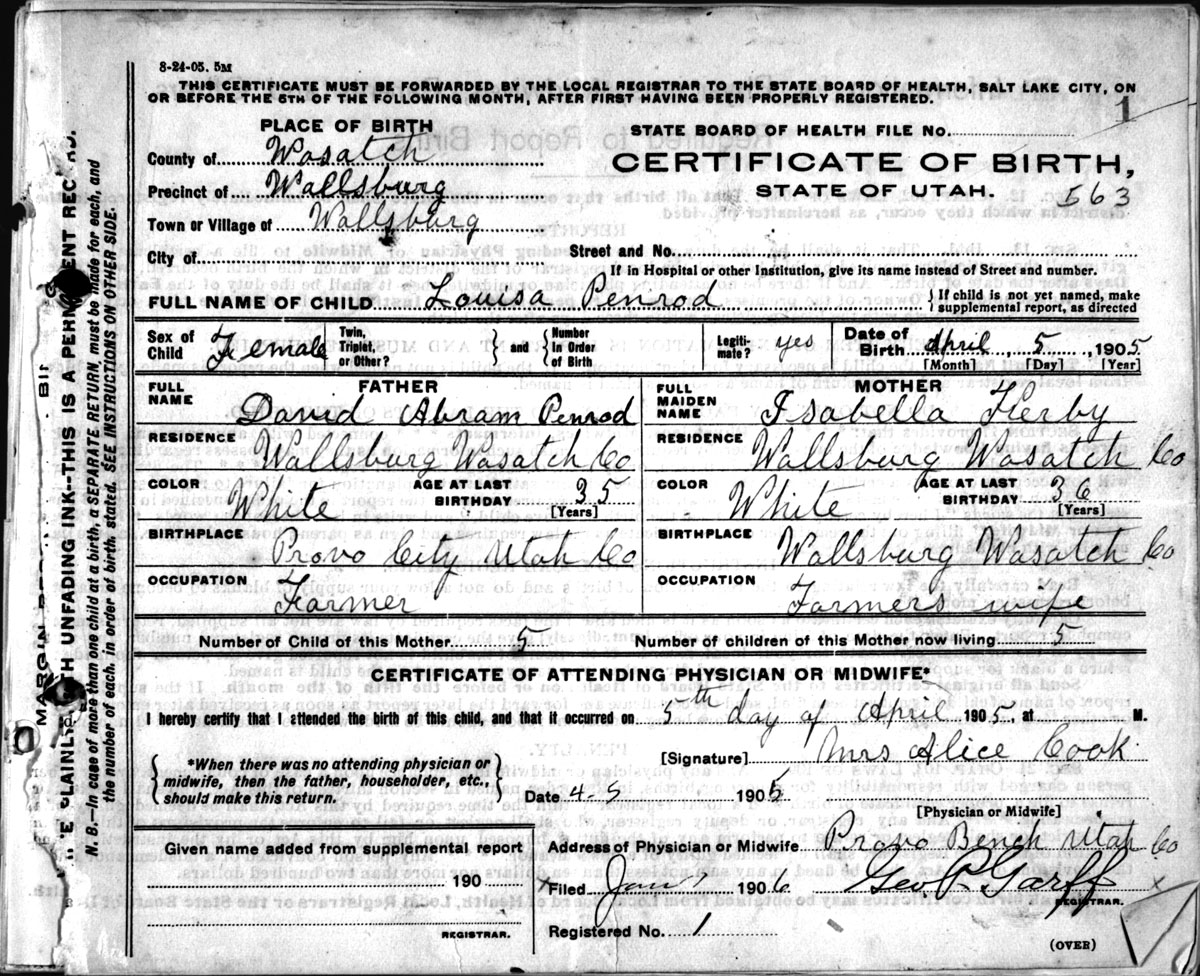 8-24-05. 5M
THIS CERTIFICATE MUST BE FORWARDED BY THE LOCAL REGISTRAR TO THE STATE BOARD OF HEALTH, SALT LAKE CITY, ON
OR BEFORE THE 5TH OF THE FOLLOWING MONTH, AFTER FIRST HAVING BEEN PROPERLY REGISTERED.
1
PLACE OF BIRTH
STATE BOARD OF HEALTH FILE No.
County of Wasatch
CERTIFICATE OF BIRTH,
Precinct of Wallsburg
STATE OF UTAH.
563
Town or Village of Wallsburg
City of
Street and No.
If in Hospital or other Institution, give its name instead of Street and number.
FULL NAME OF CHILD Louisa Penrod
{ If child is not yet named, make
supplemental report, as directed
Sex of Child Female
Twin, Triplet, or Other? } and { Number In Order of Birth
Legiti-mate? yes
Date of Birth April 5, 1905
[Month] [Day] [Year]
FATHER
MOTHER
FULL NAME David Abram Penrod
FULL MAIDEN NAME Isabella Kerby
RESIDENCE Wallsburg Wasatch Co
RESIDENCE Wallsburg Wasatch Co
COLOR White AGE AT LAST BIRTHDAY 35 [Years]
COLOR White AGE AT LAST BIRTHDAY 36 [Years]
BIRTHPLACE Provo City Utah Co
BIRTHPLACE Wallsburg Wasatch Co
OCCUPATION Farmer
OCCUPATION Farmers wife
Number of Child of this Mother 5 Number of children of this Mother now living 5
CERTIFICATE OF ATTENDING PHYSICIAN OR MIDWIFE*
I hereby certify that I attended the birth of this child, and that it occurred on 5th day of April 1905, at M.
{ *When there was no attending physician or
midwife, then the father, householder, etc.,
should make this return. }
[Signature] Mrs Alice Cook
Date 1905
[Physician or Midwife]
Given name added from supplemental report
190
REGISTRAR.
Address of Physician or Midwife Provo Bench Utah Co
x Filed Jan 1906 Geo P Garff x
REGISTRAR.
Registered No. 1
(OVER)
N. B.—In case of more than one child at a birth, a SEPARATE RETURN must be made for each, and
the number of each, in order of birth, stated. SEE INSTRUCTIONS ON OTHER SIDE.
UNFADING INK--THIS IS A
MARGIN